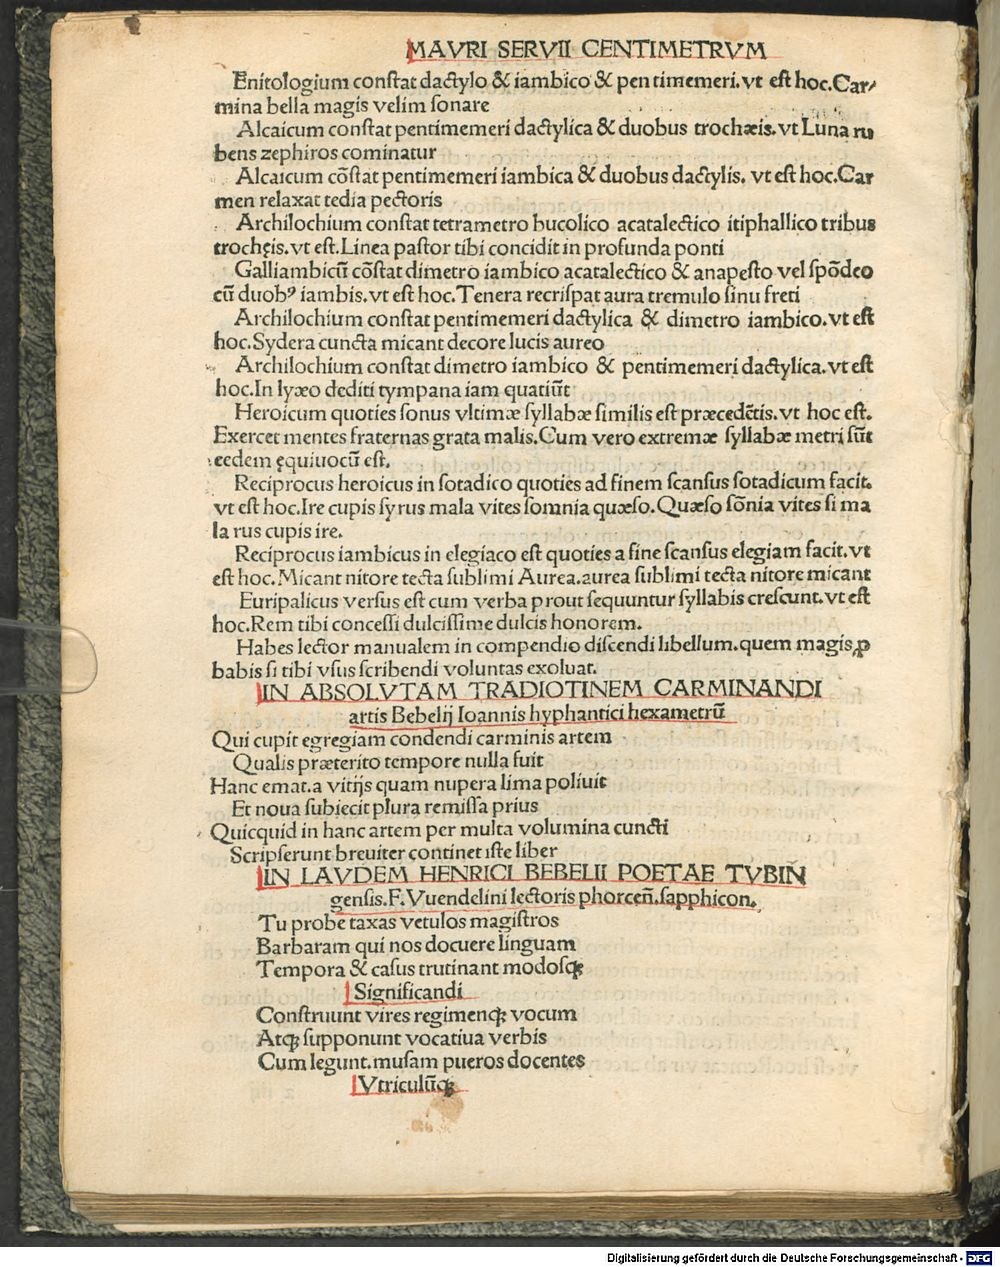 MAVRI SERVII CENTIMETRVM
Enitologium conſtat dactylo & iambico & pentimemeri. vt eſt hoc. Car⸗
mina bella magis velim ſonare
Alcaicum conſtat pentimemeri dactylica & duobus trochæis. vt Luna ru
bens zephiros cominatur
Alcaicum cõſtat pentimemeri iambica & duobus dactylis. vt eſt hoc. Car
men relaxat tedia pectoris
Archilochium conſtat tetrametro bucolico acatalectico itiphallico tribus
trochęis. vt eſt. Linea paſtor tibi concidit in profunda ponti
Galliambicũ cõſtat dimetro iambico acatalectico & anapeſto vel ſpõdeo
cũ duobꝰ iambis. vt eſt hoc. Tenera recriſpat aura tremulo ſinu freti
Archilochium conſtat pentimemeri dactylica & dimetro iambico. vt eſt
hoc. Sydera cuncta micant decore lucis aureo
Archilochium conſtat dimetro iambico & pentimemeri dactylica. vt eſt
hoc. In lyæo dediti tympana iam quatiũt
Heroicum quoties ſonus vltimæ ſyllabæ ſimilis eſt præcedẽtis. vt hoc eſt.
Exercet mentes fraternas grata malis. Cum vero extremæ ſyllabæ metri ſũt
eedem ęquiuocũ eſt.
Reciprocus heroicus in ſotadico quoties ad finem ſcanſus ſotadicum facit.
vt eſt hoc. Ire cupis ſyrus mala vites ſomnia quæſo. Quæſo ſõnia vites ſi ma
la rus cupis ire.
Reciprocus iambicus in elegiaco eſt quoties a fine ſcanſus elegiam facit. vt
eſt hoc. Micant nitore tecta ſublimi Aurea. aurea ſublimi tecta nitore micant
Euripalicus verſus eſt cum verba prout ſequuntur ſyllabis creſcunt. vt eſt
hoc. Rem tibi conceſſi dulciſſime dulcis honorem.
Habes lector manualem in compendio diſcendi libellum. quem magis ꝓ
babis ſi tibi vſus ſcribendi voluntas exoluat.
IN ABSOLVTAM TRADIOTINEM CARMINANDI
artis Bebelij Ioannis hyphantici hexametrũ
Qui cupit egregiam condendi carminis artem
Qualis præterito tempore nulla fuit
Hanc emat. a vitijs quam nupera lima poliuit
Et noua ſubiecit plura remiſſa prius
Quicquid in hanc artem per multa volumina cuncti
Scripſerunt breuiter continet iſte liber
IN LAVDEM HENRICI BEBELII POETAE TVBIÑ
genſis. F. Vuendelini lectoris phorceñ. ſapphicon.
Tu probe taxas vetulos magiſtros
Barbaram qui nos docuere linguam
Tempora & caſus trutinant modoſqꝫ
Significandi
Conſtruunt vires regimenqꝫ vocum
Atqꝫ ſupponunt vocatiua verbis
Cum legunt. muſam pueros docentes
Vtriculũqꝫ
Digitalisierung gefördert durch die Deutsche Forschungsgemeinschaft - DFG